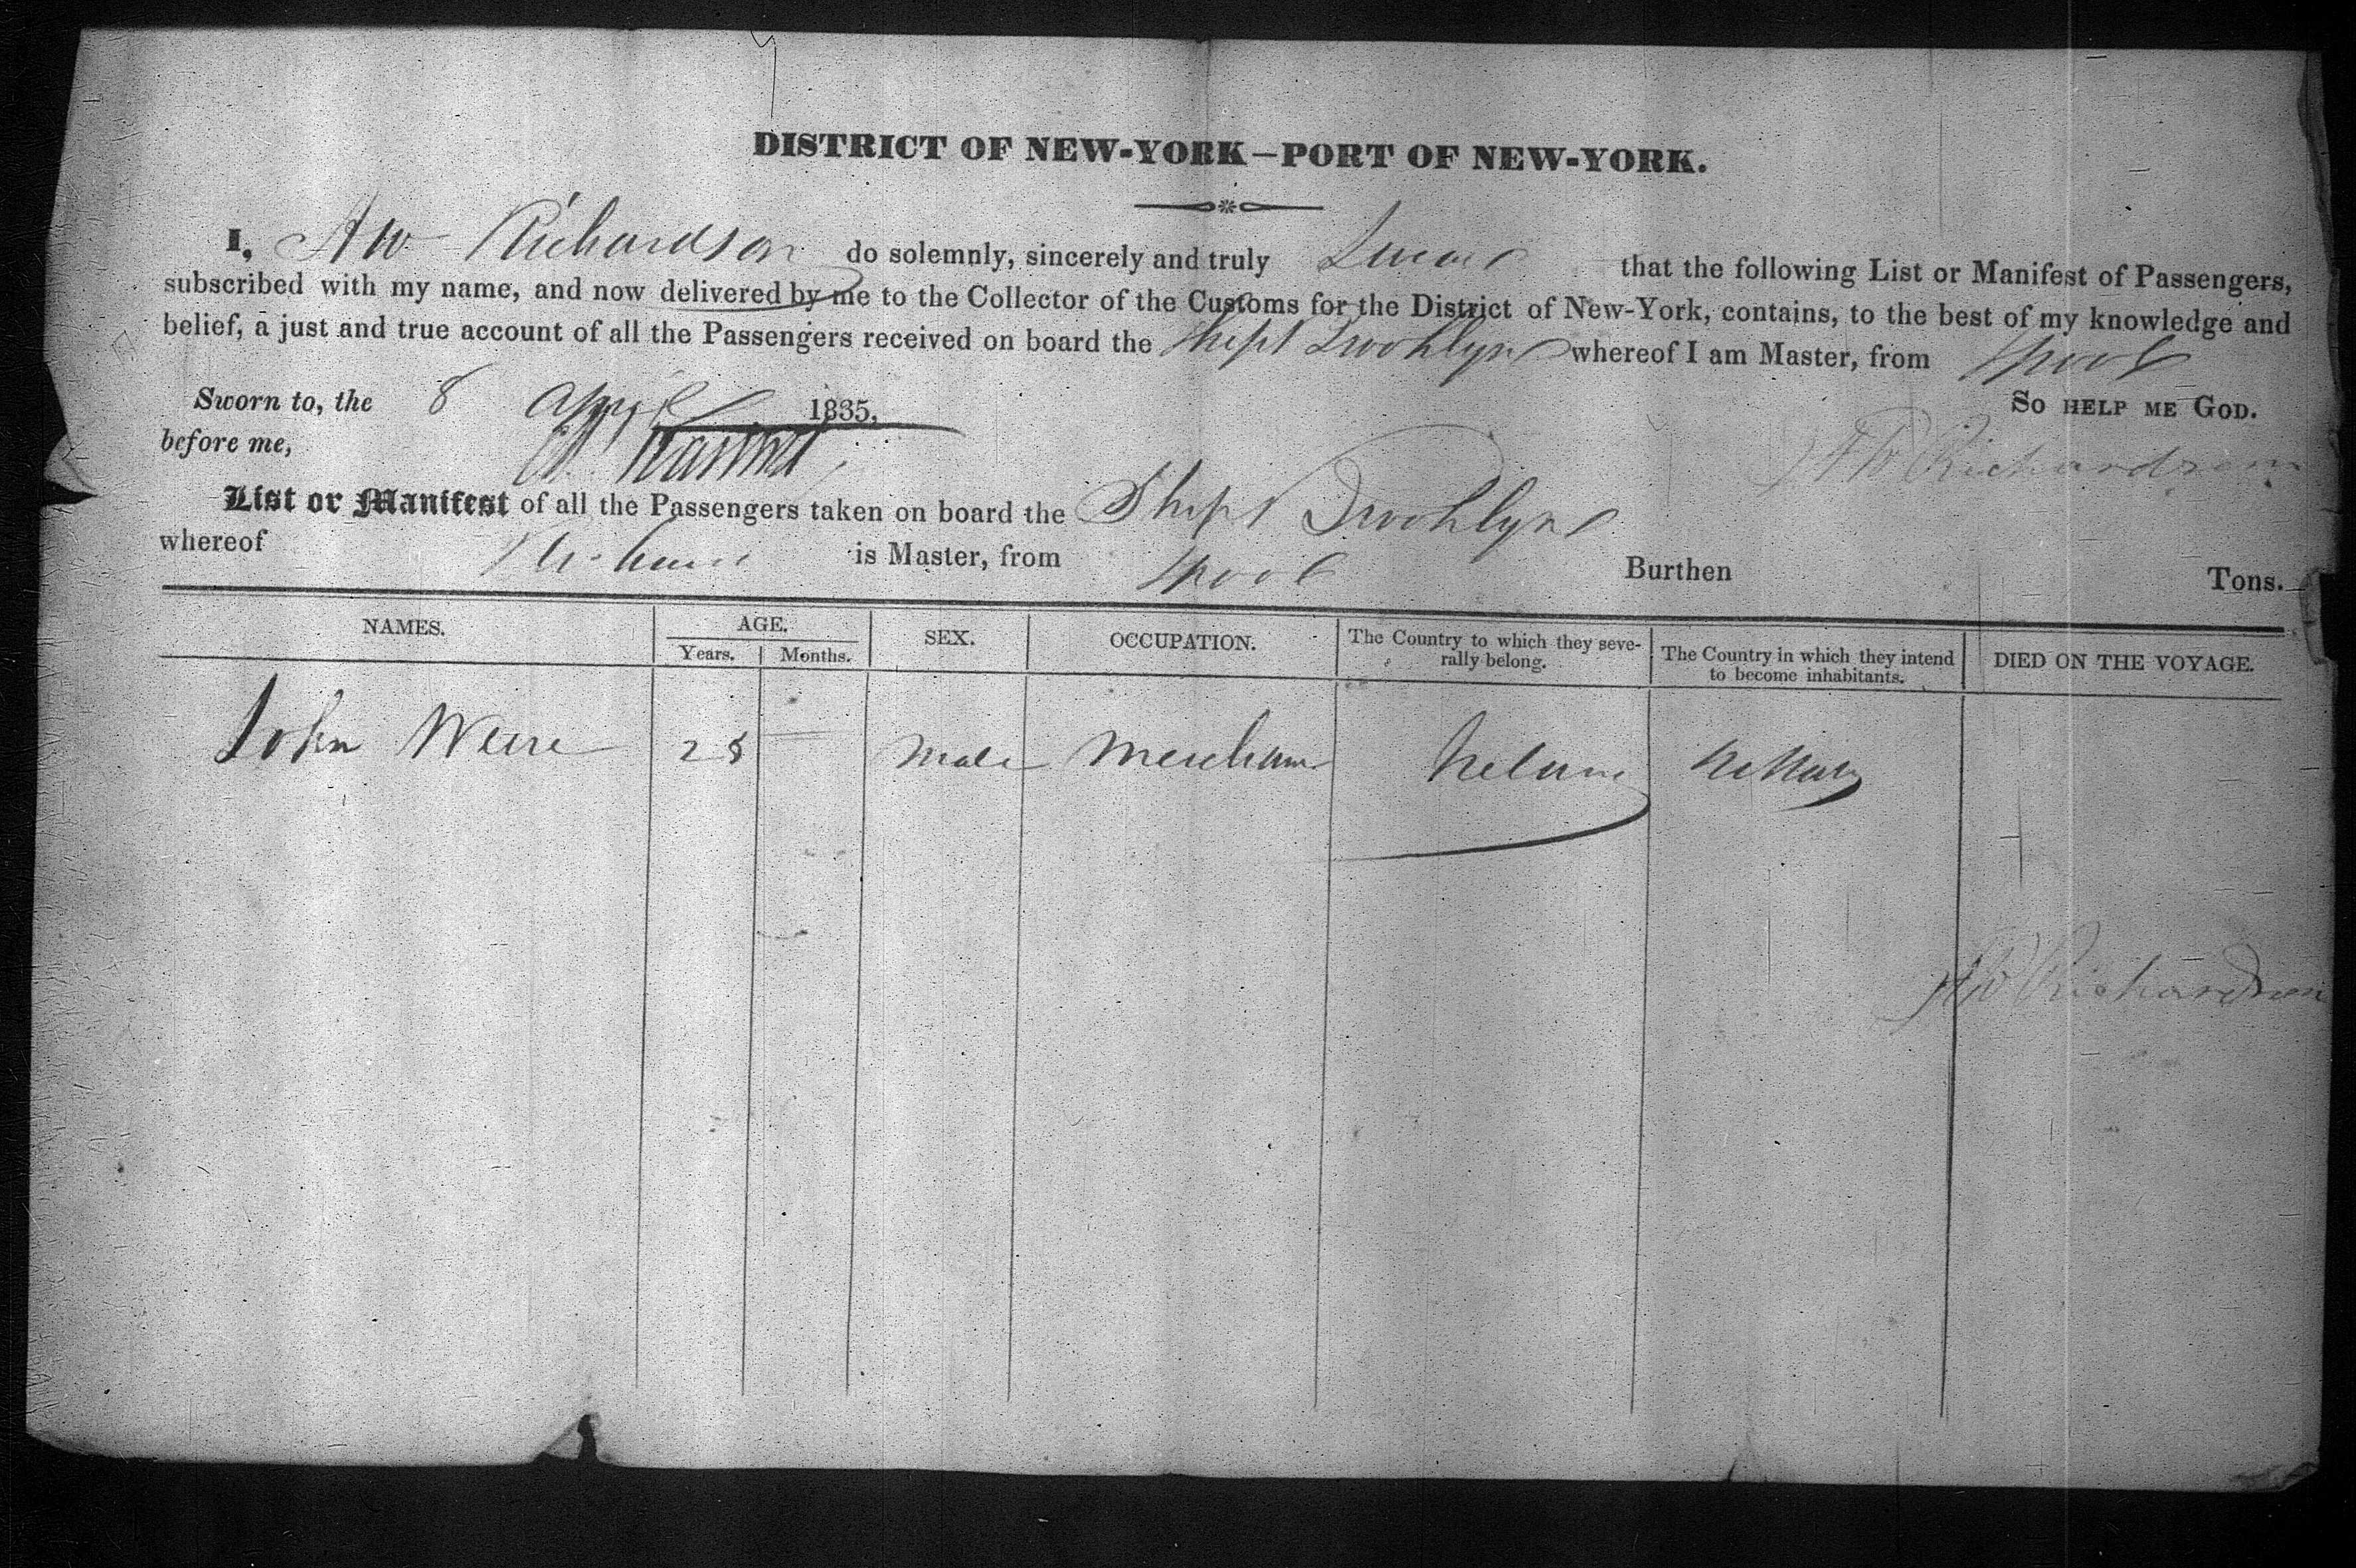 DISTRICT OF NEW-YORK—PORT OF NEW-YORK.
I, A W Richardson do solemnly, sincerely and truly Swear that the following List or Manifest of Passengers,
subscribed with my name, and now delivered by me to the Collector of the Customs for the District of New-York, contains, to the best of my knowledge and
belief, a just and true account of all the Passengers received on board the Ship Brooklyn whereof I am Master, from Lpool
Sworn to, the 8 April 1835, So HELP ME GOD.
before me, A W Richardson
List or Manifest of all the Passengers taken on board the Ship Brooklyn
whereof Richardson is Master, from Lpool Burthen Tons.
NAMES. AGE. SEX. OCCUPATION. The Country to which they seve-rally belong. The Country in which they intend to become inhabitants. DIED ON THE VOYAGE.
Years. Months.
John Weire 28 — Male Merchant Ireland
A W Richardson